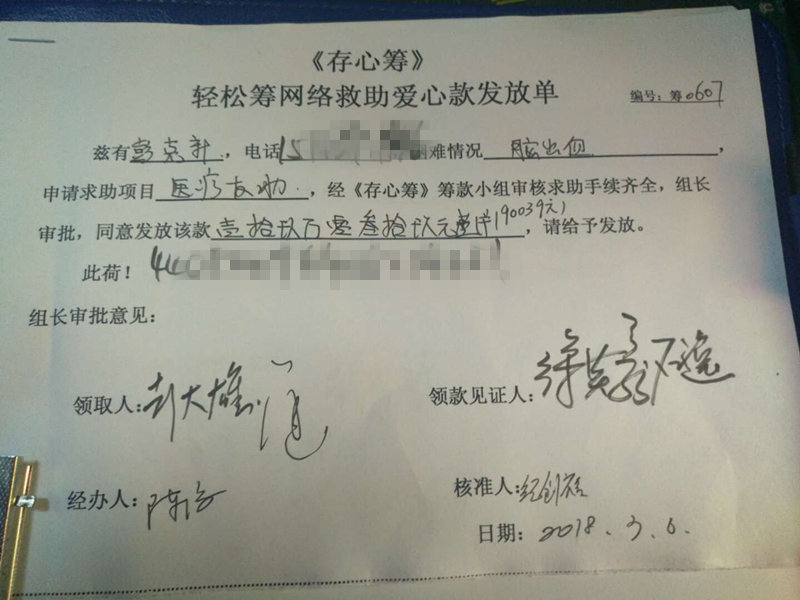 《存心筹》
轻松筹网络救助爱心款发放单
编号：筹0607
兹有彭克轩，电话15 难情况 脑出血，
申请求助项目 医疗救助，经《存心筹》筹款小组审核求助手续齐全，组长
审批，同意发放该款 壹拾玖万零叁拾玖元 (190039元)，请给予发放。
此荷！ 44
组长审批意见：
领取人：彭大雄
领款见证人：
经办人：陈
核准人：纪创
日期：2018.3.6.